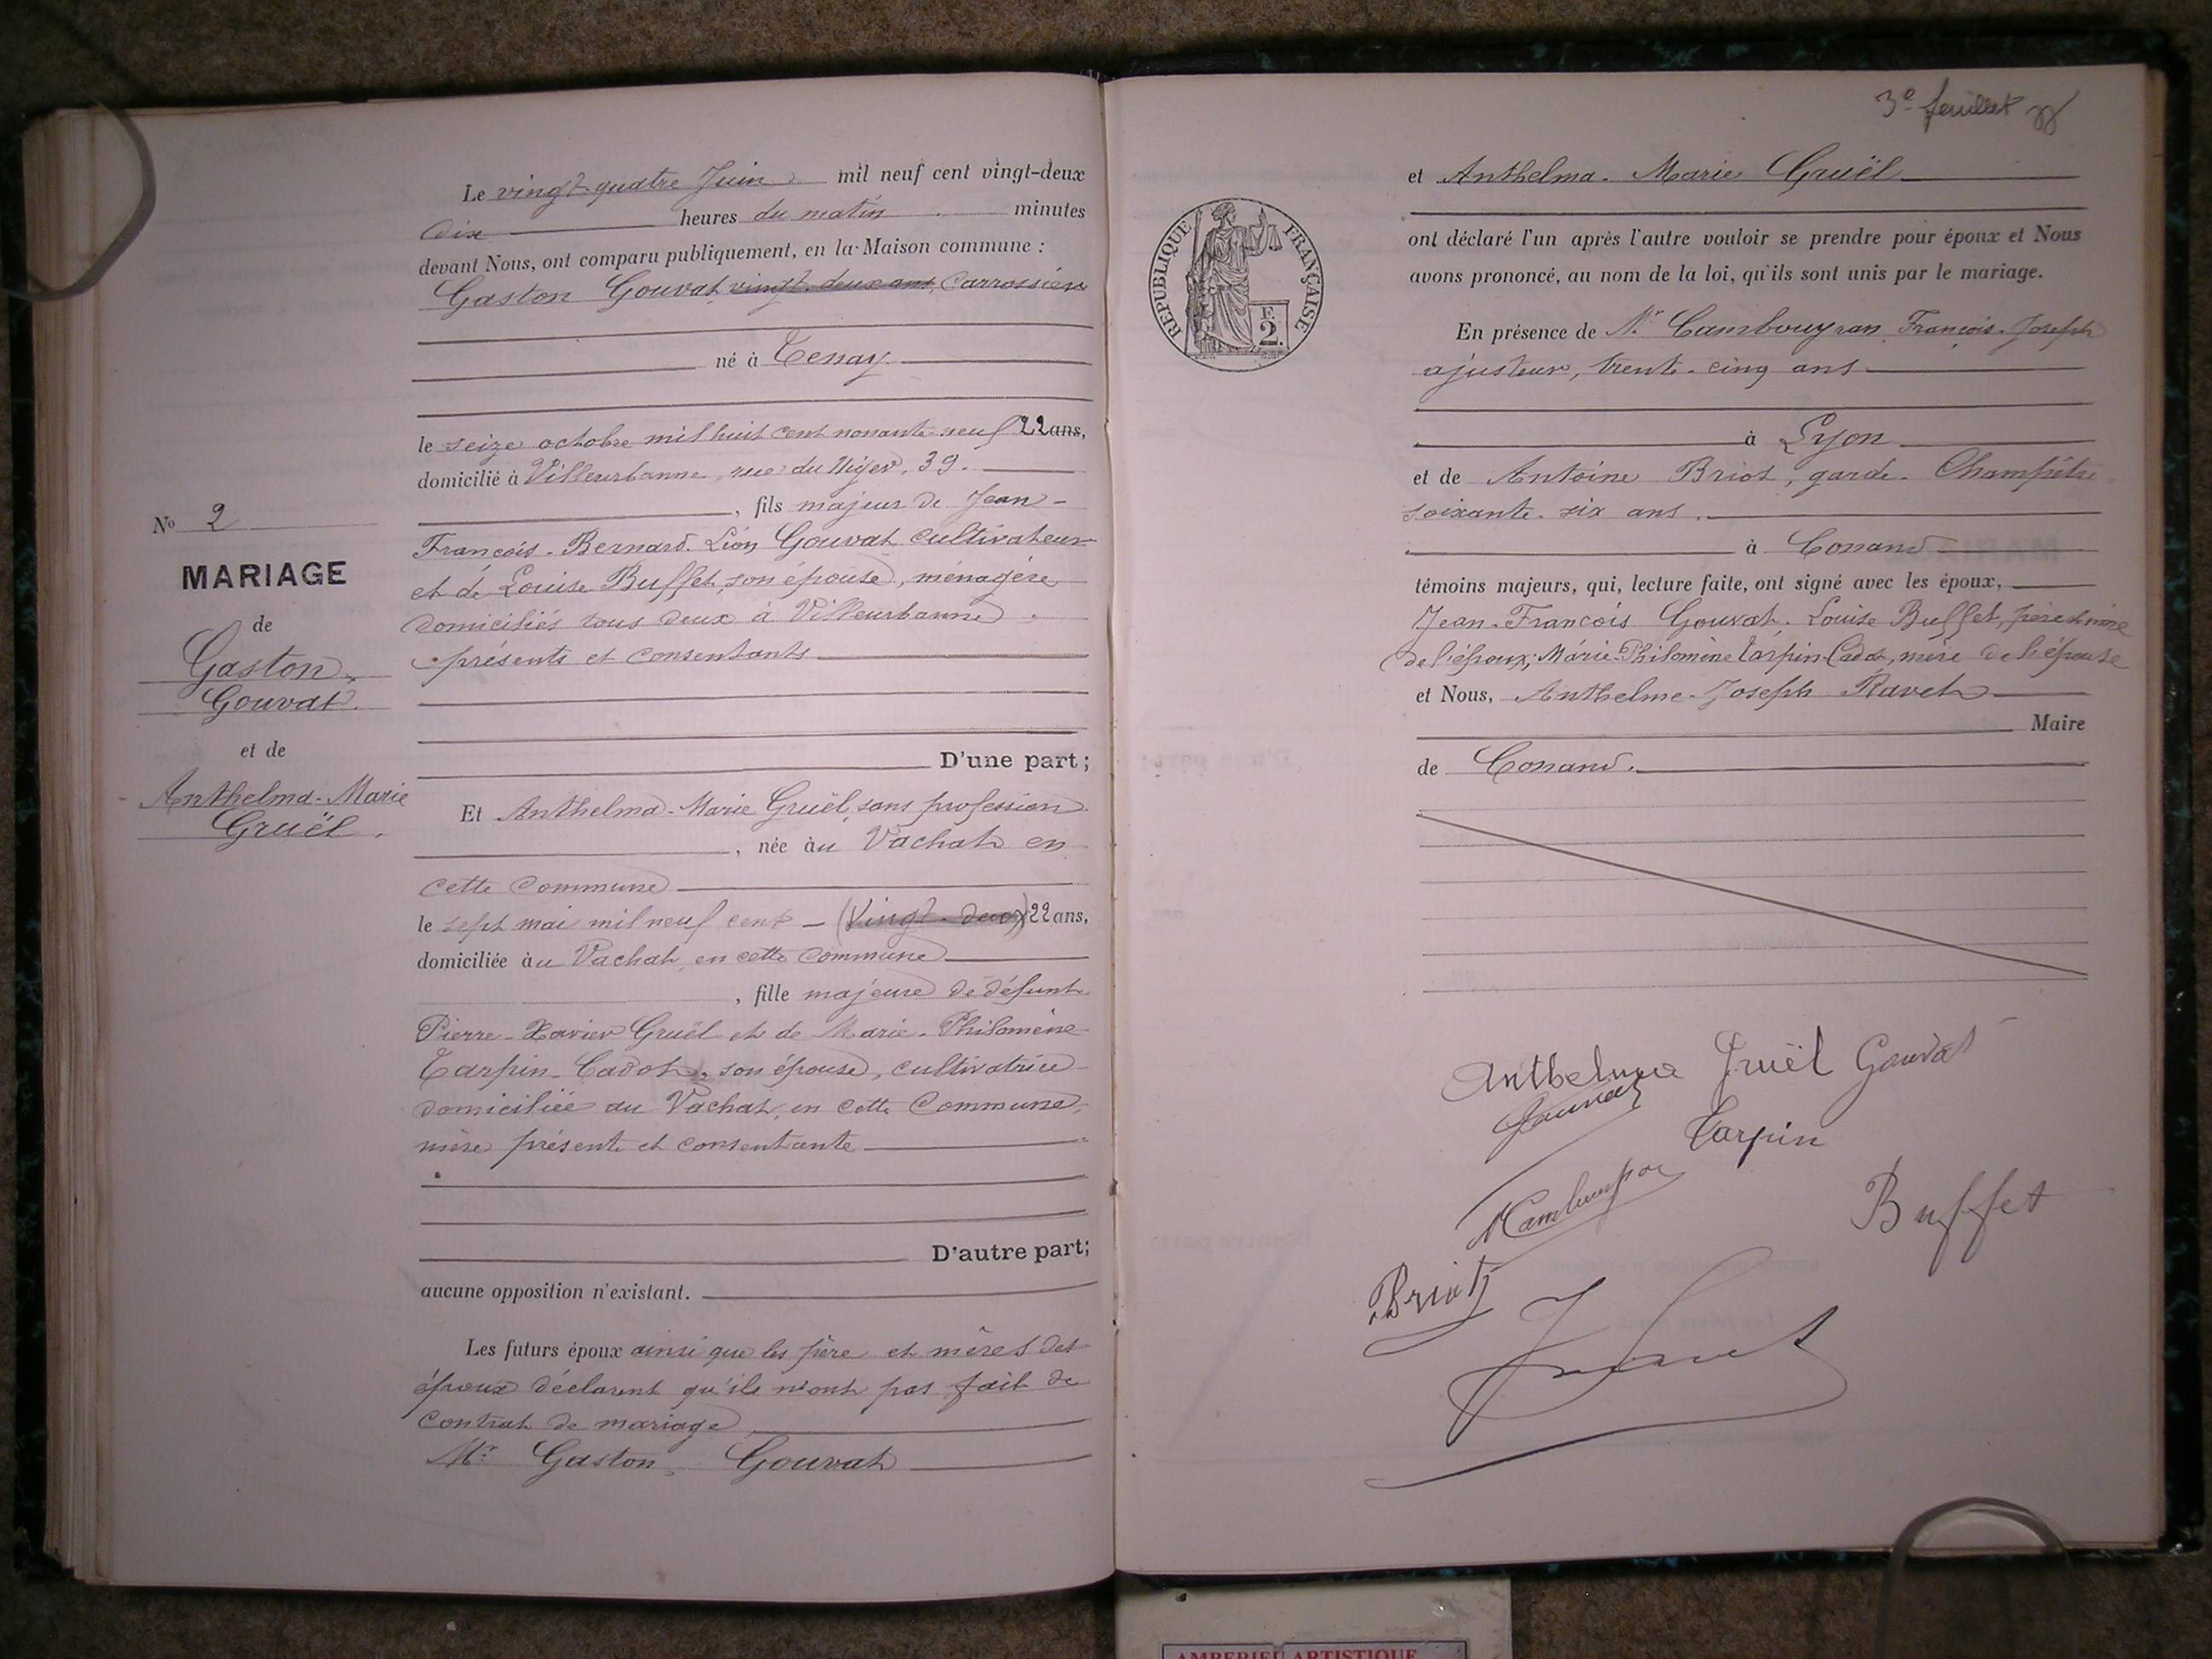 Le vingt-quatre Juin mil neuf cent vingt-deux
dix heures du matin minutes
devant Nous, ont comparu publiquement, en la Maison commune :
Gaston Gouvat, vingt-deux ans, Carrossier
né à Tenay
le seize octobre mil huit cent nonante-neuf 22 ans,
domicilié à Villeurbanne, rue du Niger, 39.
, fils majeur de Jean-
François-Bernard-Léon Gouvat cultivateur
et de Louise Buffet, son épouse, ménagère
domiciliés tous deux à Villeurbanne
présents et consentants
D'une part ;
No 2
MARIAGE
de
Gaston
Gouvat.
et de
Anthelma-Marie
Gruël.
Et Anthelma-Marie Gruël, sans profession
, née au Vachat en
cette Commune
le sept mai mil neuf cent (Vingt-deux) 22 ans,
domiciliée au Vachat en cette Commune
, fille majeure de défunt
Pierre-Xavier Gruël et de Marie-Philomène
Tarpin-Cadot, son épouse, cultivatrice
domiciliée au Vachat, en cette Commune,
mère présente et consentante
D'autre part;
aucune opposition n'existant.
Les futurs époux ainsi que les père et mères des
époux déclarent qu'ils n'ont pas fait de
contrat de mariage
Mr Gaston Gouvat
3e feuillet
RÉPUBLIQUE FRANÇAISE
F.
2.
et Anthelma-Marie Gruël
ont déclaré l'un après l'autre vouloir se prendre pour époux et Nous
avons prononcé, au nom de la loi, qu'ils sont unis par le mariage.
En présence de Mr Cambouyran François-Joseph
ajusteur, trente-cinq ans
à Lyon
et de Antoine Briot, garde-Champêtre
soixante-six ans.
à Conand
témoins majeurs, qui, lecture faite, ont signé avec les époux,
Jean-François Gouvat, Louise Buffet, père et mère
de l'époux, Marie-Philomène Tarpin-Cadot, mère de l'épouse
et Nous, Anthelme-Joseph Ravet
Maire
de Conand.
Anthelma Gruël Gouvat
Gouvat
Tarpin
Buffet
Briot
AMBERIEU ARTISTIQUE